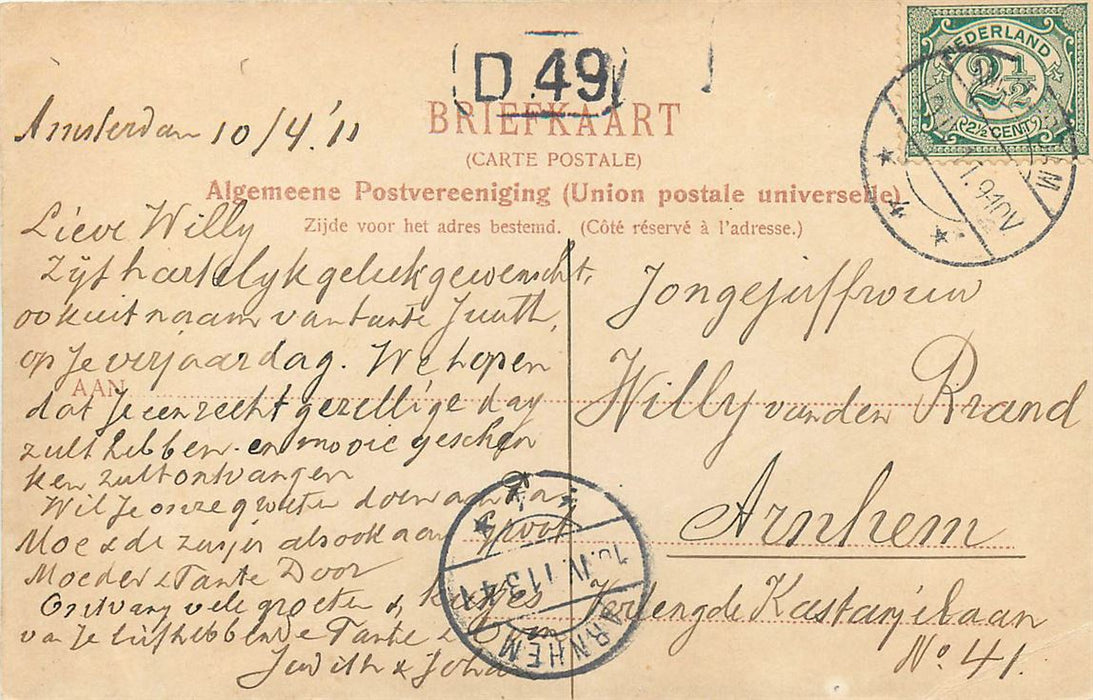 D 49
BRIEFKAART
(CARTE POSTALE)
Algemeene Postvereeniging (Union postale universelle)
Zijde voor het adres bestemd. (Côté réservé à l'adresse.)
NEDERLAND
2½
2½ CENT
Amsterdam 10/4 '11
Lieve Willy
Zijt hartelijk geluk gewenscht,
ook uit naam van tante Juuth,
op Je verjaardag. We hopen
AAN
dat Je een recht gezellige dag
zult hebben en mooie geschen
ken zult ontvangen
Wil Je onze groeten doen aan
Moe & de zusjes als ook aan Groot
Moeder & Tante Door
Ontvang vele groeten & kusjes
van Je liefhebbende Tante
Judith & John
Jongejuffrouw
Willy van den Brand
Arnhem
Verlengde Kastanjelaan
No. 41.
ARNHEM